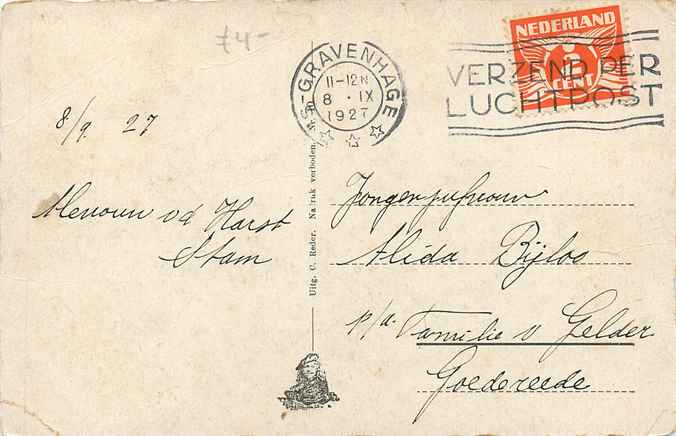 f4-
NEDERLAND
2
CENT
'S-GRAVENHAGE
11-12N
8 · IX
1927
VERZEND PER
LUCHTPOST
8/9. 27
Mevouw vd Harst
Stam
Uitg. C. Reder. Nadruk verboden.
Jongejufrouw
Alida Bijlos
p/a. Familie v Gelder
Goedereede